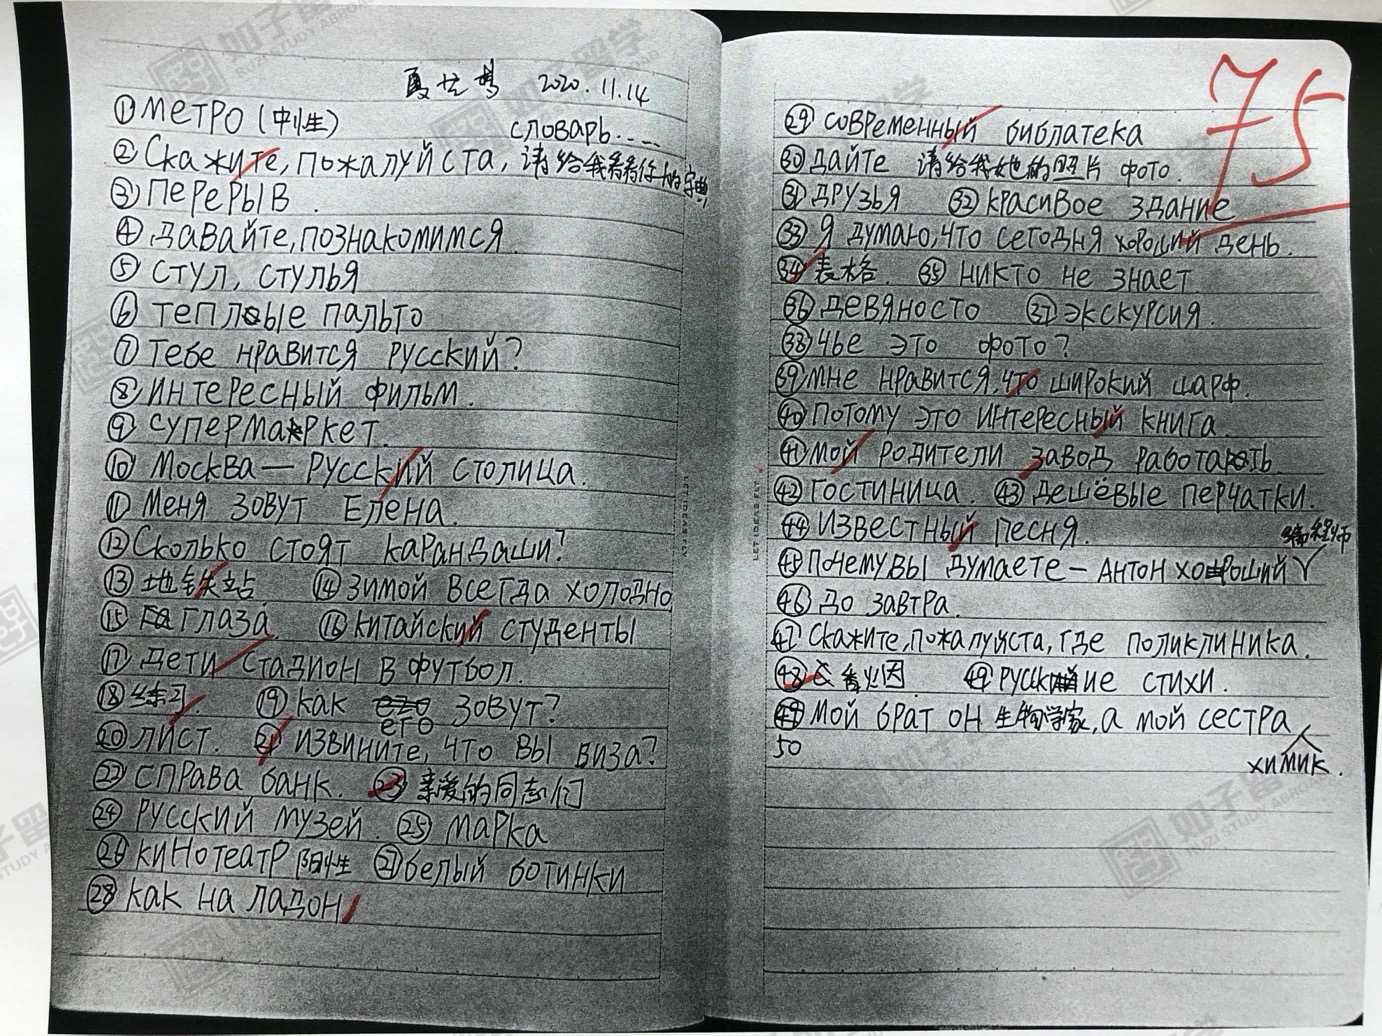 2020.11.14
① метро (中性) словарь....
② Скажите, пожалуйста, 请给我看看你的字典
③ перерыв.
④ давайте, познакомимся.
⑤ стул, стулья
⑥ теплые пальто
⑦ тебе нравится русский?
⑧ интересный фильм.
⑨ супермаркет.
⑩ Москва — русский столица.
⑪ Меня зовут Елена.
⑫ Сколько стоят карандаши?
⑬ 地铁站 ⑭ зимой всегда холодно
⑮ глаза ⑯ китайский студенты
⑰ дети стадион в футбол.
⑱ 练习 ⑲ как его зовут?
⑳ лист. ㉑ извините, что вы виза?
㉒ справа банк. ㉓ 亲爱的同志们
㉔ русский музей. ㉕ марка
㉖ кинотеатр 阳性 ㉗ белый ботинки
㉘ как на ладон
75
㉙ современный библатека
㉚ дайте 请给我她的照片 фото.
㉛ друзья ㉜ красивое здание
㉝ Я думаю, что сегодня хороший день.
㉞ 表格. ㉟ никто не знает
㊱ девяносто ㊲ экскурсия.
㊳ чье это фото?
㊴ мне нравится, что широкий шарф.
㊵ потому это интересный книга.
㊶ мой родители завод работать.
㊷ гостиница. ㊸ дешёвые перчатки.
㊹ известный песня.
㊺ почему вы думаете — Антон хороший 编程师
㊻ до завтра.
㊼ скажите, пожалуйста, где поликлиника.
㊽ ㊾ русские стихи.
мой брат он 生物学家, а мой сестра химик.
50
如子留学
RUZI STUDY ABROAD